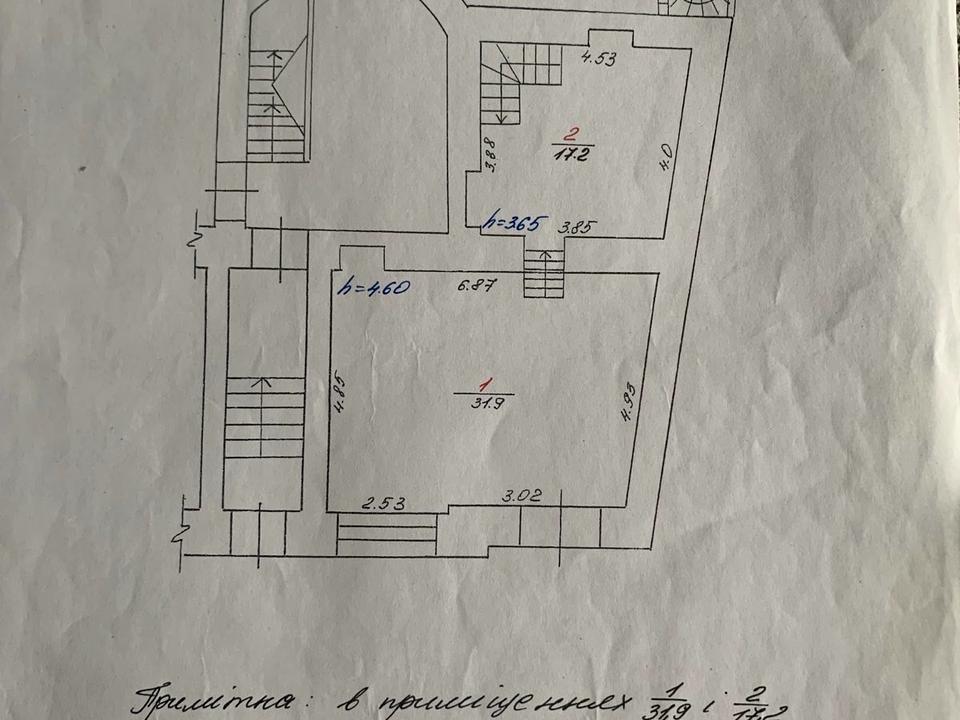 4.53
2
17.2
3.88
4.0
h=3.65
3.85
h=4.60
6.87
4.85
1
31.9
4.93
2.53
3.02
Примітка: в приміщеннях 1/31,9 і 2/17,2